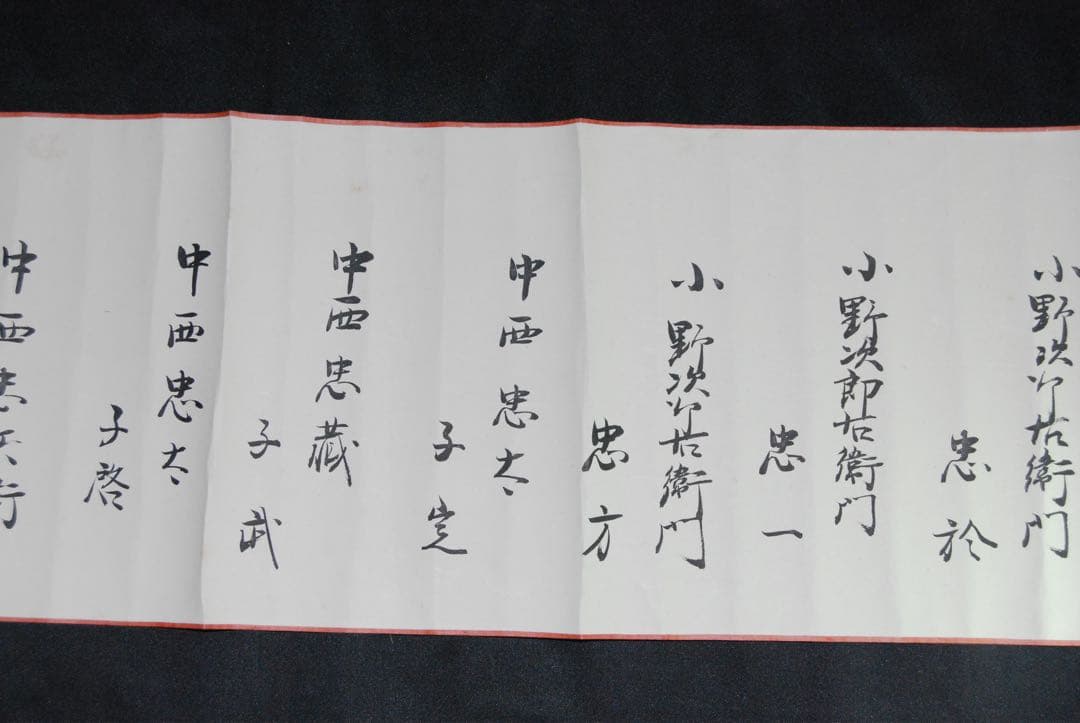 小野次郎右衛門
忠於
小野次郎右衛門
忠一
小野次郎右衛門
忠方
中西忠太
子定
中西忠藏
子武
中西忠太
子啓
中西忠兵衛